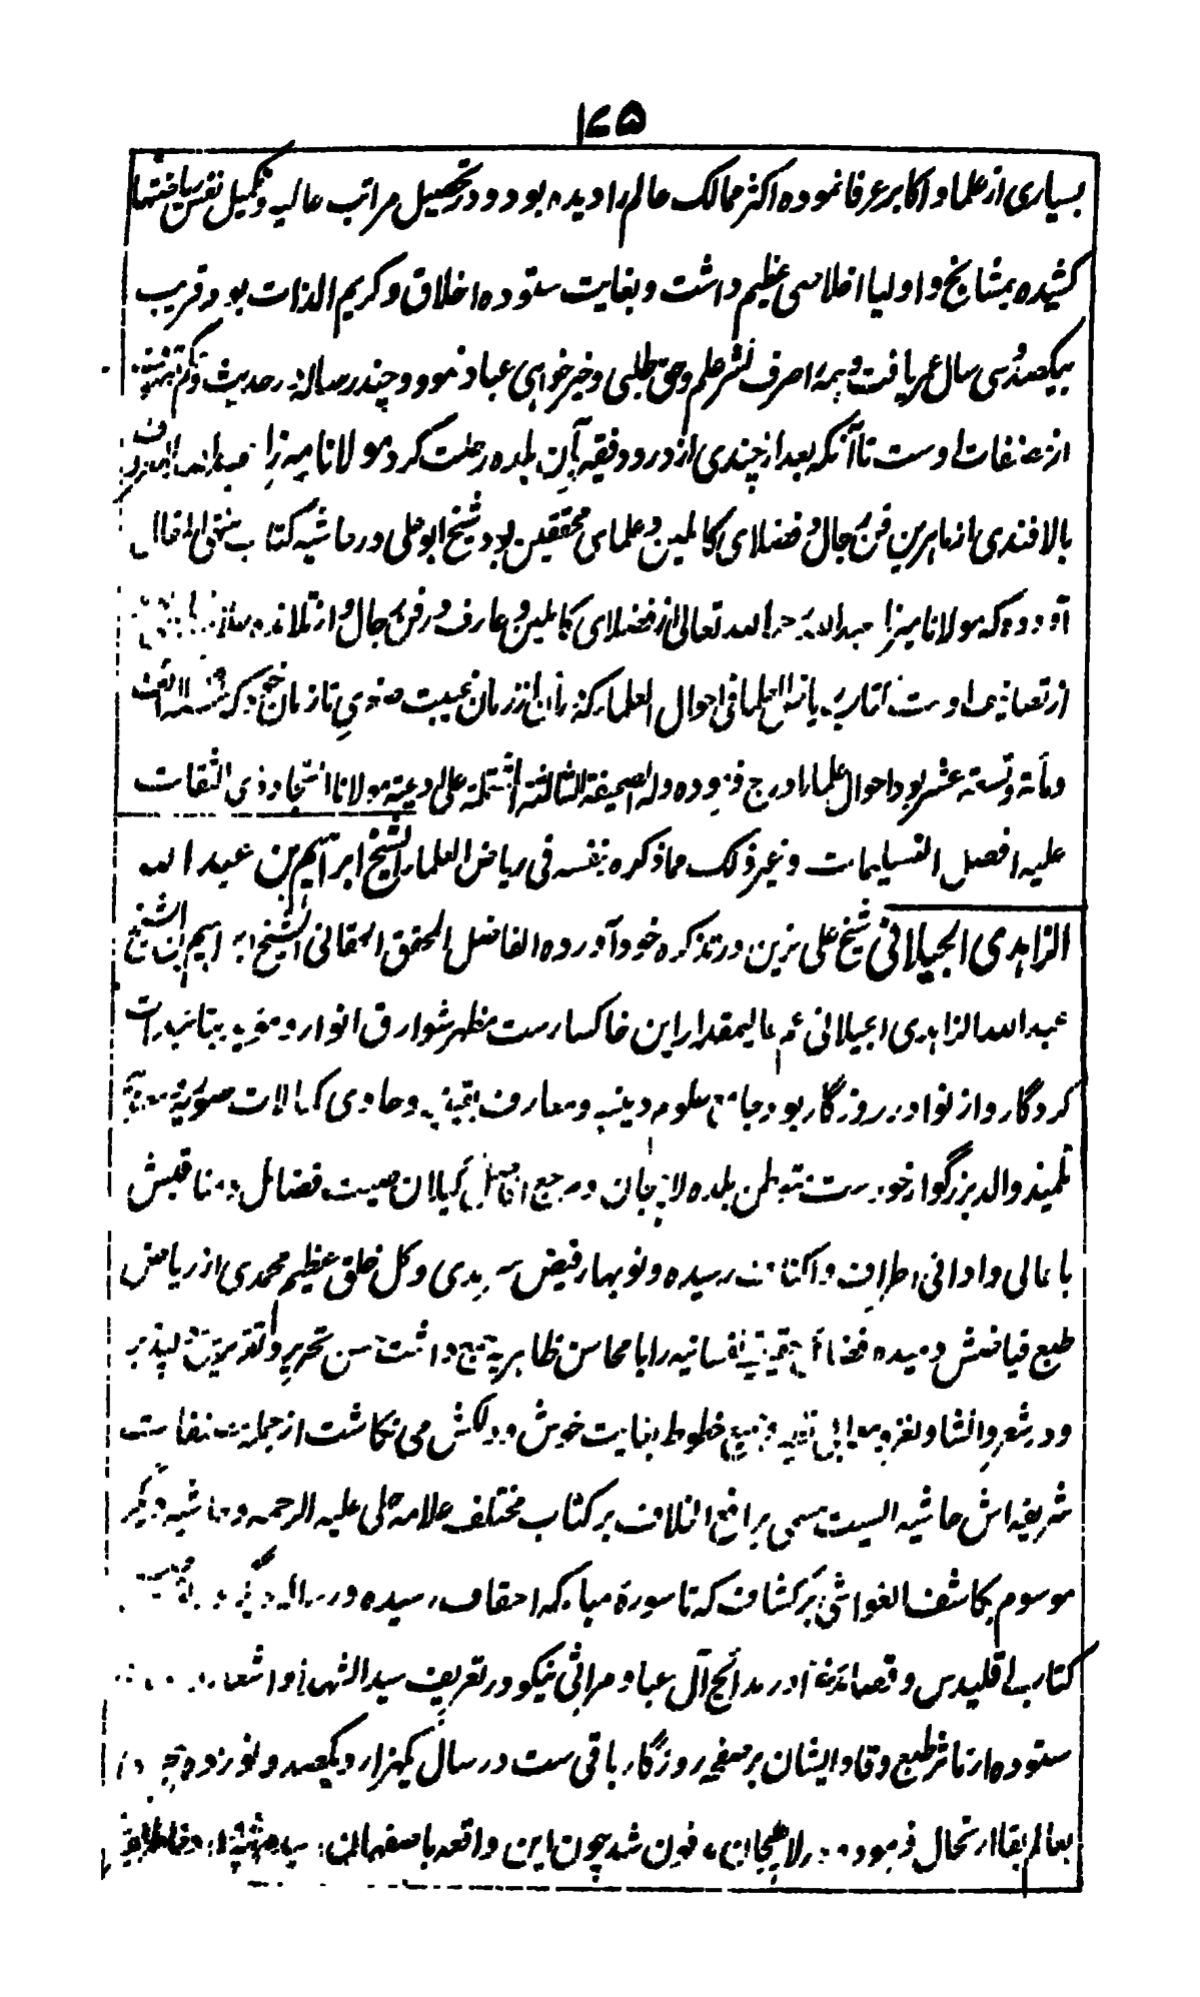 ۱۷۵
بسیاری از علما و اکابر عرفا نموده اکثر ممالک عالم را دیده بود و در تحصیل مراتب عالیه و تکمیل نفس ریاضتها
کشیده بمشایخ و اولیا اخلاصی عظیم داشت و بغایت ستوده اخلاق و کریم الذات بود قریب
بیکصد و سی سال عمر یافت و همه را صرف نشر علم و حق طلبی و خیر خواهی عباد نموده و چند رساله در حدیث و حکم
از مصنفات اوست تا آنکه بعد از چندی از درود فقیر بآن بلده رحلت کرد مولانا میرزا عبد الله المعروف
بالافندی از ماهرین فن رجال و فضلای کاملین و علمای محققین بود شیخ ابو علی در حاشیه کتاب منتهی المقال
آورده که مولانا میرزا عبد الله رحمه الله تعالی از فضلای کاملین و عارف در فن رجال و از تلامذه
از تصانیف اوست کتاب ریاض العلما فی احوال العلما که در آن از زمان غیبت صغری تا زمان خود که سنه الف
و مأته و تسعه عشر بود احوال علما را درج فرموده وله الصحیفة الثالثة المشتملة علی ادعیة مولانا السجاد ذی الثفنات
علیه افضل التسلیمات و غیر ذلک مما ذکره بنفسه فی ریاض العلماء الشیخ ابراهیم بن عبد الله
الزاهدی الجیلانی شیخ علی حزین در تذکره خود آورده الفاضل المحقق الحقانی الشیخ ابراهیم ابن الشیخ
عبد الله الزاهدی الجیلانی عم عالیمقدار این خاکسارست مظهر شوارق انوار و مؤید بتائیدات
کردگار و از نوادر روزگار بود جامع علوم دینیه و معارف یقینیه و حاوی کمالات صوریه و معنویه
تلمیذ والد بزرگوار خودست متوطن بلده لاهیجان و مرجع افاضل گیلان صیت فضائل و مناقبش
باعالی و ادانی اطراف و اکناف رسیده و نوبهار فیض سرمدی و گل خلق عظیم محمدی از ریاض
طبع فیاضش دمیده فضائل حقیقیه نفسانیه را با محاسن ظاهریه جمع داشت حسن تحریر و تقریرش دلپذیر
و در شعر و انشا و لغز و معما بی نظیر و جمیع خطوط بغایت خوش و دلکش می نگاشت از جمله مصنفات
شریفه اش حاشیه ایست مسمی برافع الخلاف بر کتاب مختلف علامه حلی علیه الرحمه و حاشیه دیگر
موسوم بکاشف الغواشی بر کشاف که تا سورهٔ مبارکه احقاف رسیده و رساله
کتاب اقلیدس و قصائد غرا در مدائح آل عبا و مراثی نیکو در تعریف سید الشهدا و اشعار
ستوده از مآثر طبع وقاد ایشان بر صفحه روزگار باقی ست در سال یکهزار و یکصد و نوزده هجری
بعالم بقا ارتحال فرموده در لاهیجان مدفون شد چون این واقعه باصفهان رسید